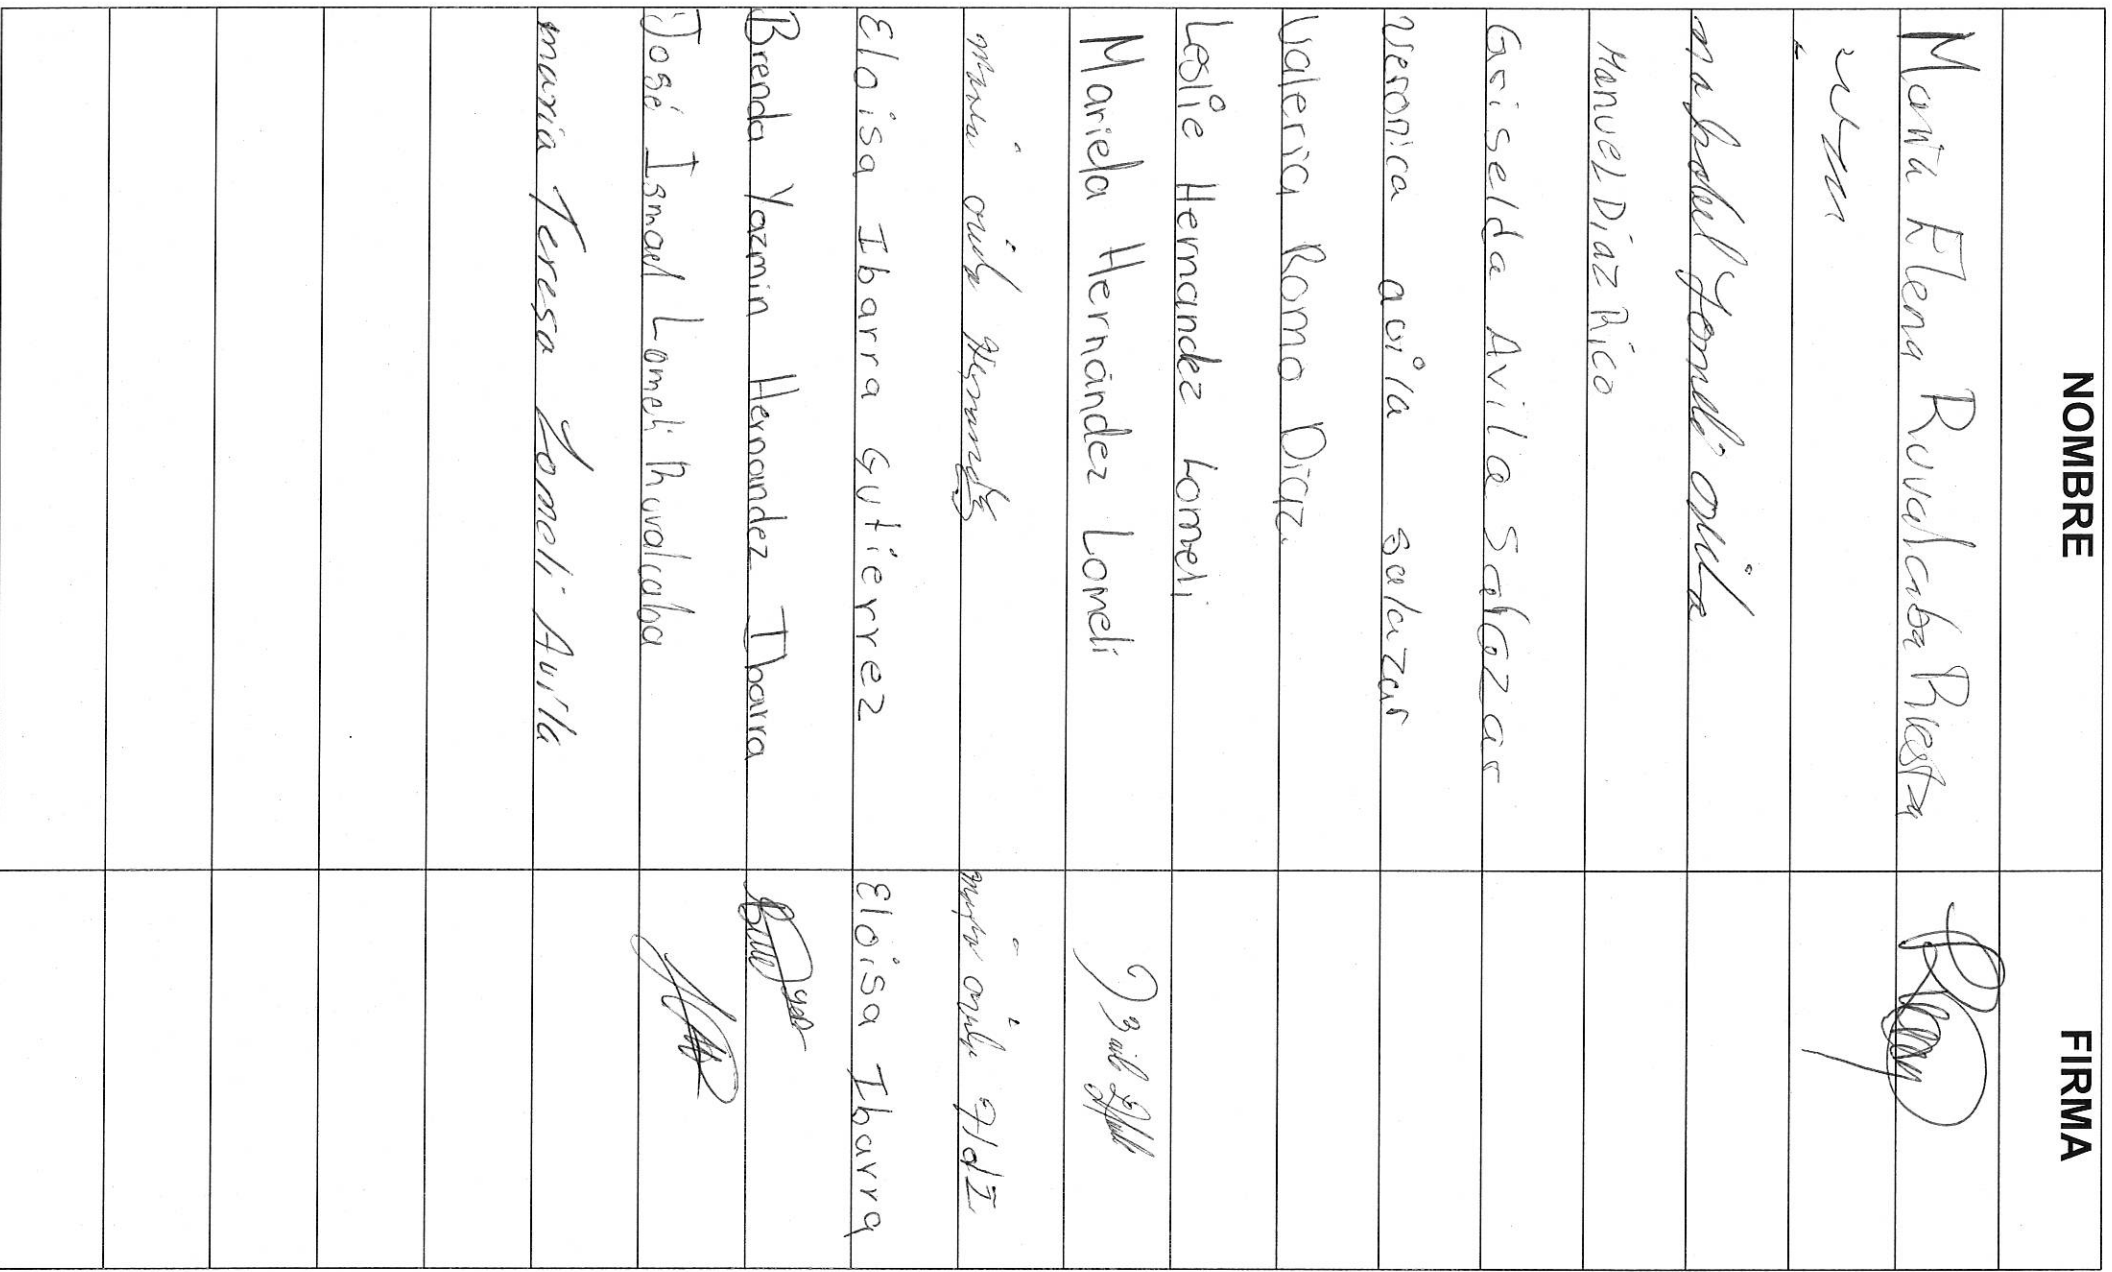 NOMBRE FIRMA
Maria Elena Ruvalcaba Riesta
Yomeli avila
Manuel Díaz Rico
Griselda Avila Salazar
Veronica avila Salazar
Valeria Romo Diaz.
Leslie Hernandez Lomeli
Mariela Hernández Lomelí
Maria avila Hernandez
Eloisa Ibarra Gutierrez Eloisa Ibarra
Brenda Yazmin Hernandez Ibarra
José Ismael Lomeli Ruvalcaba
maria Teresa Lomeli Avila